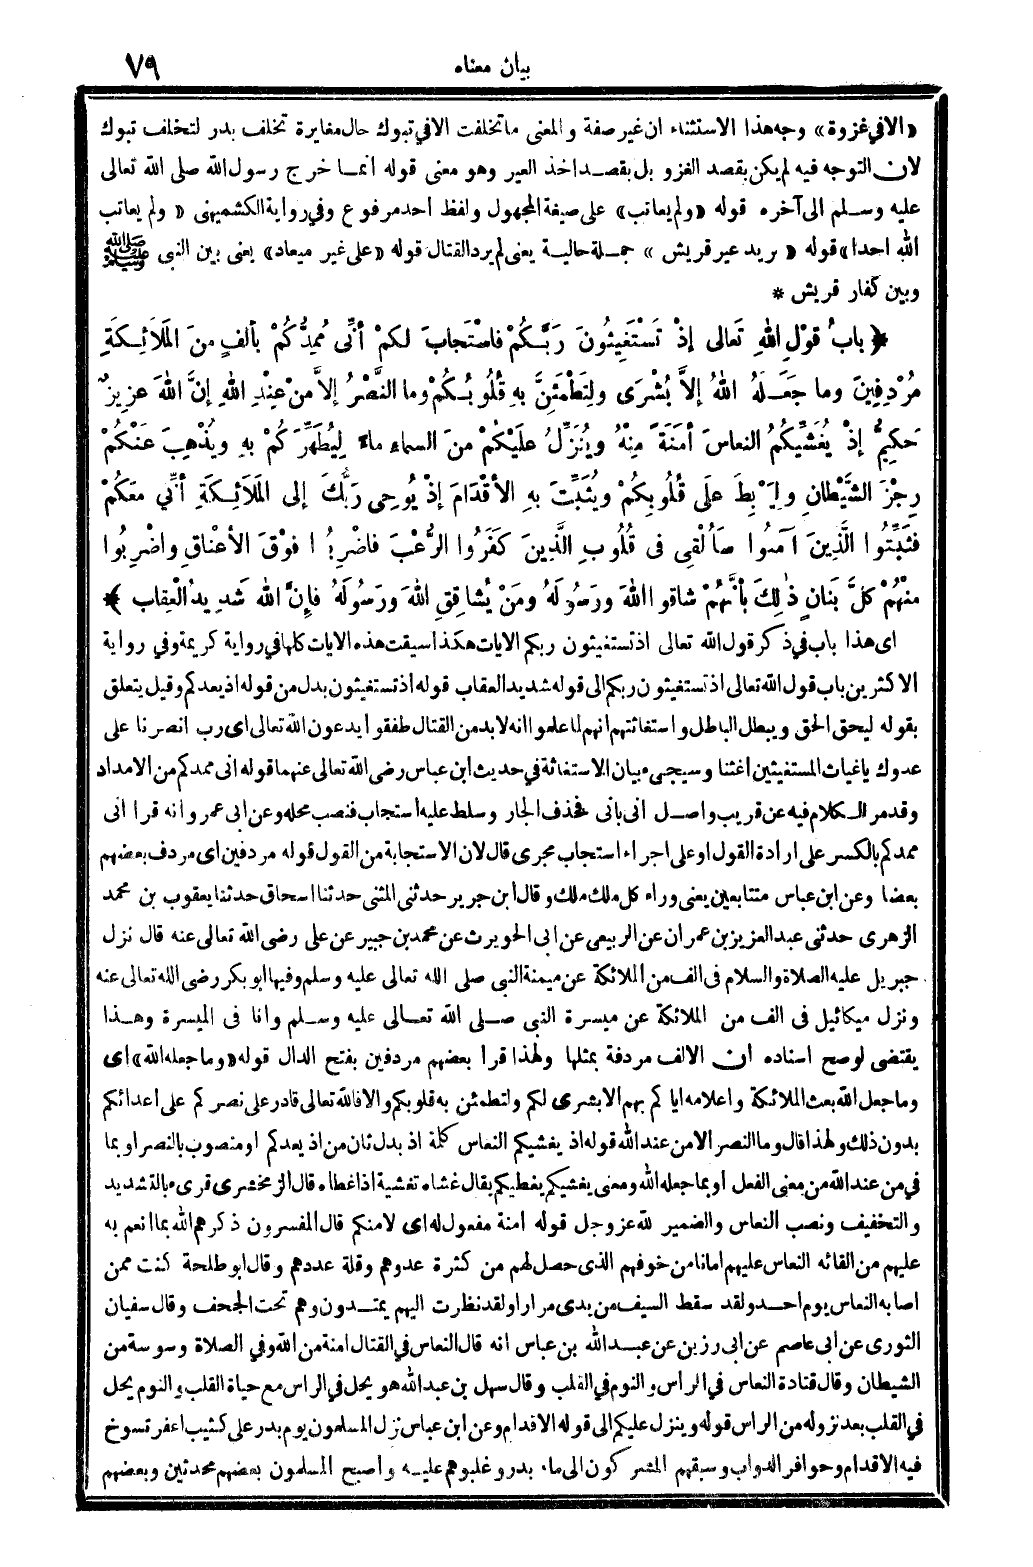 بيان معناه ٧٩
«الا في غزوة» وجه هذا الاستثناء ان غير صفة والمعنى ما تخلفت الا في تبوك حال مغايرة تخلف بدر لتخلف تبوك
لان التوجه فيه لم يكن بقصد الغزو بل بقصد اخذ العير وهو معنى قوله انما خرج رسول الله صلى الله تعالى
عليه وسلم الى آخره قوله «ولم يعاتب» على صيغة المجهول ولفظ احد مرفوع وفي رواية الكشميهني «ولم يعاتب
الله احدا» قوله «يريد عير قريش» جملة حالية يعني لم يرد القتال قوله «على غير ميعاد» يعني بين النبي ﷺ
وبين كفار قريش *
﴿ بابُ قَوْلِ اللهِ تَعالى إذْ تَسْتَغِيثُونَ رَبَّكُمْ فاسْتَجابَ لكمْ أنِّى مُمِدُّكُمْ بألفٍ مِنَ المَلَائِكَةِ
مُرْدِفِينَ وما جَعَلَهُ اللهُ إلاَّ بُشْرَى ولِتَطْمَئِنَّ بِهِ قُلُوبُكُمْ وما النَّصْرُ إلاَّ مِنْ عِنْدِ اللهِ إنَّ اللهَ عزيزٌ
حَكِيمٌ إذْ يُغَشِّيكُمُ النعاسَ أمَنَةً مِنْهُ ويُنَزِّلُ علَيْكُمْ منَ السماءِ ماءً لِيُطَهِّرَكُمْ بهِ ويُذْهِبَ عَنْكُمْ
رِجْزَ الشَّيْطانِ ولِيَرْبِطَ علَى قُلُوبِكُمْ ويُثَبِّتَ بهِ الأقْدَامَ إذْ يُوحِى رَبُّكَ إلى المَلَائِكَةِ أنِّي معَكُمْ
فثَبِّتُوا الَّذِينَ آمنُوا سَأُلْقِى فى قُلُوبِ الَّذِينَ كَفَرُوا الرُّعْبَ فاضْرِبُوا فوْقَ الأعْناقِ واضْرِبُوا
منْهُمْ كلَّ بَنَانٍ ذٰلِكَ بأنَّهُمْ شاقوا اللهَ ورَسُولَهُ ومَنْ يُشاقِقِ اللهَ ورَسُولَهُ فإنَّ الله شَدِيدُ العِقاب ﴾
اى هذا باب في ذكر قول الله تعالى اذ تستغيثون ربكم الايات هكذا سيقت هذه الايات كلها في رواية كريمة وفي رواية
الاكثرين باب قول الله تعالى اذ تستغيثون ربكم الى قوله شديد العقاب قوله اذ تستغيثون بدل من قوله اذ يعدكم وقيل يتعلق
بقوله ليحق الحق ويبطل الباطل واستغاثتهم انهم لما علموا انه لا بد من القتال طفقوا يدعون الله تعالى اى رب انصرنا على
عدوك يا غياث المستغيثين اغثنا وسيجىء بيان الاستغاثة في حديث ابن عباس رضى الله تعالى عنهما قوله انى ممدكم من الامداد
وقد مر الكلام فيه عن قريب واصل انى بانى فحذف الجار وسلط عليه استجاب فنصب محله وعن ابى عمرو انه قرا انى
ممدكم بالكسر على ارادة القول او على اجراء استجاب مجرى قال لان الاستجابة من القول قوله مردفين اى مردف بعضهم
بعضا وعن ابن عباس متتابعين يعنى وراء كل ملك ملك وقال ابن جرير حدثنى المثنى حدثنا اسحاق حدثنا يعقوب بن محمد
الزهرى حدثنى عبد العزيز بن عمران عن الربعى عن ابى الحويرث عن محمد بن جبير عن على رضى الله تعالى عنه قال نزل
جبريل عليه الصلاة والسلام فى الف من الملائكة عن ميمنة النبى صلى الله تعالى عليه وسلم وفيها ابو بكر رضى الله تعالى عنه
ونزل ميكائيل فى الف من الملائكة عن ميسرة النبى صلى الله تعالى عليه وسلم وانا فى الميسرة وهذا
يقتضى لو صح اسناده ان الالف مردفة بمثلها ولهذا قرا بعضهم مردفين بفتح الدال قوله «وما جعله الله» اى
وما جعل الله بعث الملائكة واعلامه اياكم بهم الا بشرى لكم ولتطمئن به قلوبكم والا فالله تعالى قادر على نصركم على اعدائكم
بدون ذلك ولهذا قال وما النصر الا من عند الله قوله اذ يغشيكم النعاس كلمة اذ بدل ثان من اذ يعدكم او منصوب بالنصر او بما
في من عند الله من معنى الفعل او بما جعله الله ومعنى يغشيكم يغطيكم يقال غشاه تغشية اذا غطاه قال الزمخشرى قرىء بالتشديد
والتخفيف ونصب النعاس والضمير لله عز وجل قوله امنة مفعول له اى لامنكم قال المفسرون ذكرهم الله بما انعم به
عليهم من القائه النعاس عليهم امانا من خوفهم الذى حصل لهم من كثرة عدوهم وقلة عددهم وقال ابو طلحة كنت ممن
اصابه النعاس يوم احد ولقد سقط السيف من يدى مرارا ولقد نظرت اليهم يمتدون وهم تحت الجحف وقال سفيان
الثورى عن ابى عاصم عن ابى رزين عن عبد الله بن عباس انه قال النعاس في القتال امنة من الله وفي الصلاة وسوسة من
الشيطان وقال قتادة النعاس في الرأس والنوم في القلب وقال سهل بن عبد الله هو يحل في الراس مع حياة القلب والنوم يحل
في القلب بعد نزوله من الراس قوله وينزل عليكم الى قوله الاقدام وعن ابن عباس نزل المسلمون يوم بدر على كثيب اعفر تسوخ
فيه الاقدام وحوافر الدواب وسبقهم المشركون الى ماء بدر وغلبوهم عليه واصبح المسلمون بعضهم محدثين وبعضهم